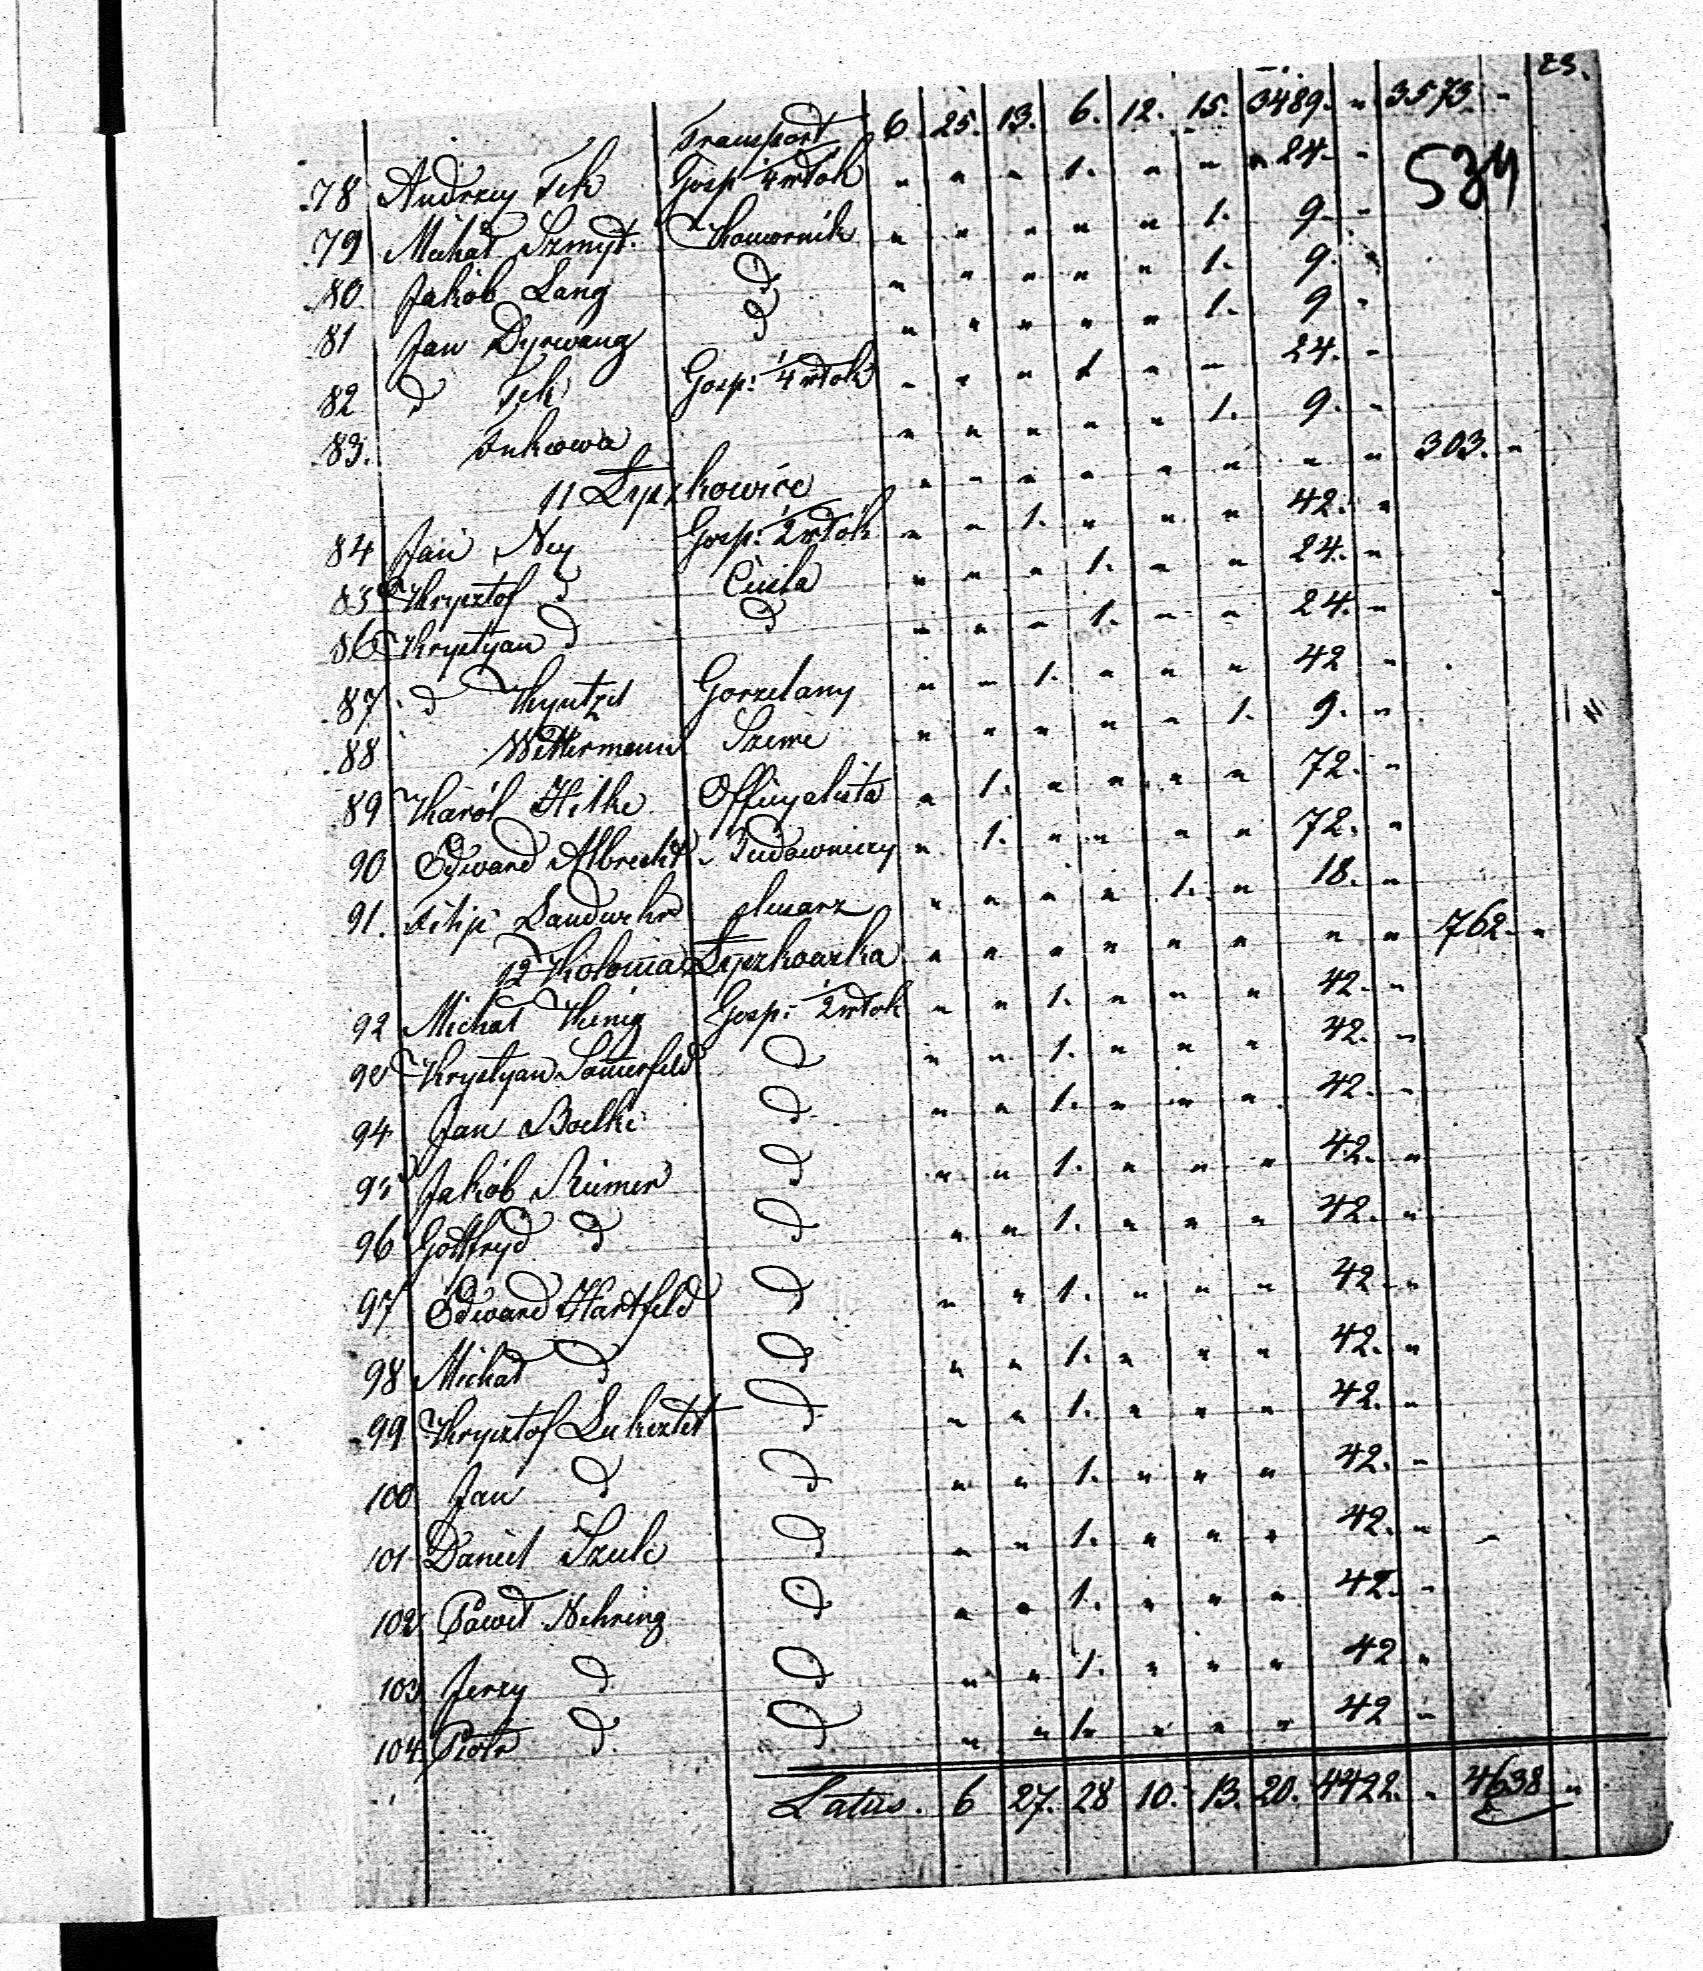 23.
Transport 6. 25. 13. 6. 12. 15. 3489. " 3573. "
534
78 Andrzey Fek Gosp: 1/4 włok " " " 1. " " 24. "
79 Michał Szmyt. Komornik " " " " " 1. 9. "
80 Jakób Lang d " " " " " 1. 9. "
81 Jan Dyrwang d " " " " " 1. 9 "
82 d Fek Gosp: 1/4 włok " " " 1 " " 24. "
83. " " " " " 1. 9. "
11 Łyszkowice " " " " " " " " 303. "
84 Jan Ney Gosp: 1/2 włok " " 1. " " " 42. "
85 Krysztof d Cieśla " " " 1. " " 24. "
86 Krystyan d d " " " 1. " " 24. "
87 d Gorzelany " " 1. " " " 42 "
88 Wettermann " " " " " 1. 9. "
89 Karól Hilke Officyalista " 1. " " " " 72. "
90 Edward Albrecht Budowniczy " 1. " " " " 72. "
91. Filip Landwehr " " " " 1. " 18. "
12 Kolonia Łyszkowska " " " " " " " " 762. "
92 Michał Kinig Gosp: 1/2 włok " " 1. " " " 42. "
93 Krystyan Somerfeld d " " 1. " " " 42. "
94 Jan Boelke d " " 1. " " " 42. "
95 Jakób Riemer d " " 1. " " " 42. "
96 Gottfryd d d " " 1. " " " 42. "
97 Edward Hartfeld d " " 1. " " " 42 "
98 Michał d d " " 1. " " " 42. "
99 Krysztof d " " 1. " " " 42. "
100 Jan d d " " 1. " " " 42. "
101 Daniel Szulc d " " 1. " " " 42. "
102 Paweł Nehring d " " 1. " " " 42. "
103 Jerzy d d " " 1. " " " 42 "
104 Piotr d d " " 1. " " " 42 "
Latus. 6 27. 28 10. 13. 20. 4422. " 4638 "